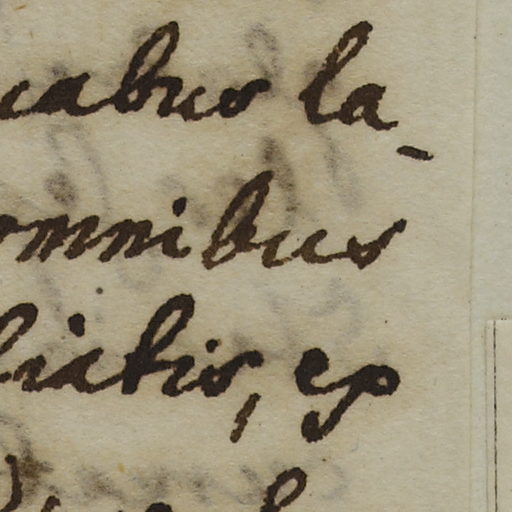 cabus la-
omnibus
liatis, ex